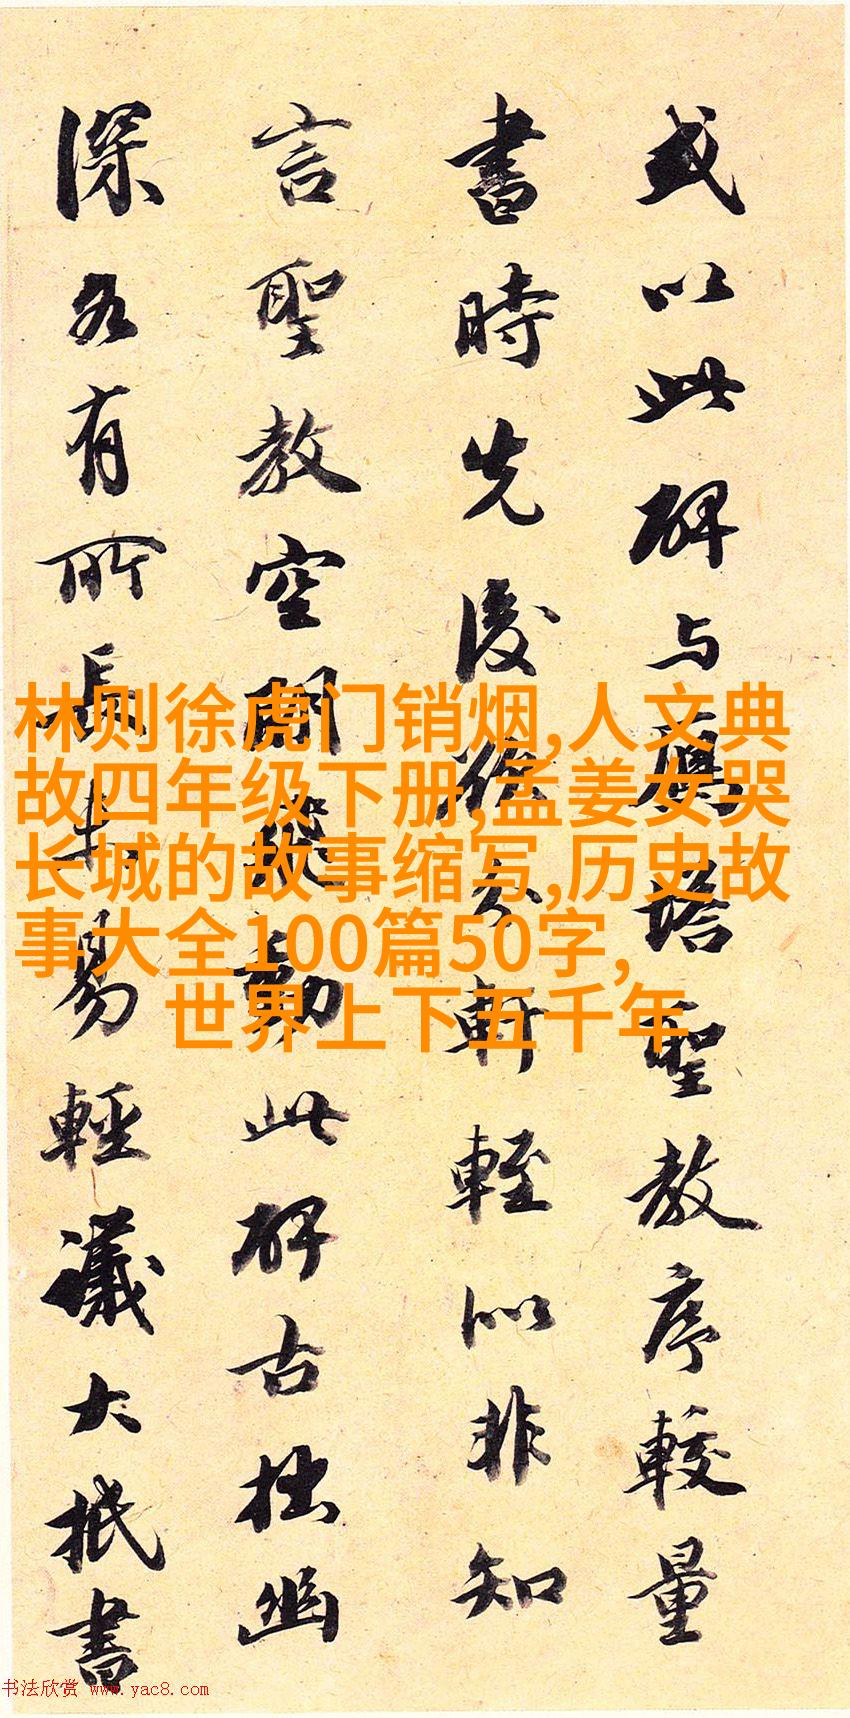 或以此碑与塔聖教序較量
書時先後分軒輊以非知
言聖教空飛動此碑古拙幽
深各有所長未易輕議大抵書
林则徐虎门销烟,人文典
故四年级下册,孟姜女哭
长城的故事缩写,历史故
事大全100篇50字,
世界上下五千年
书法欣赏 www.yac8.com